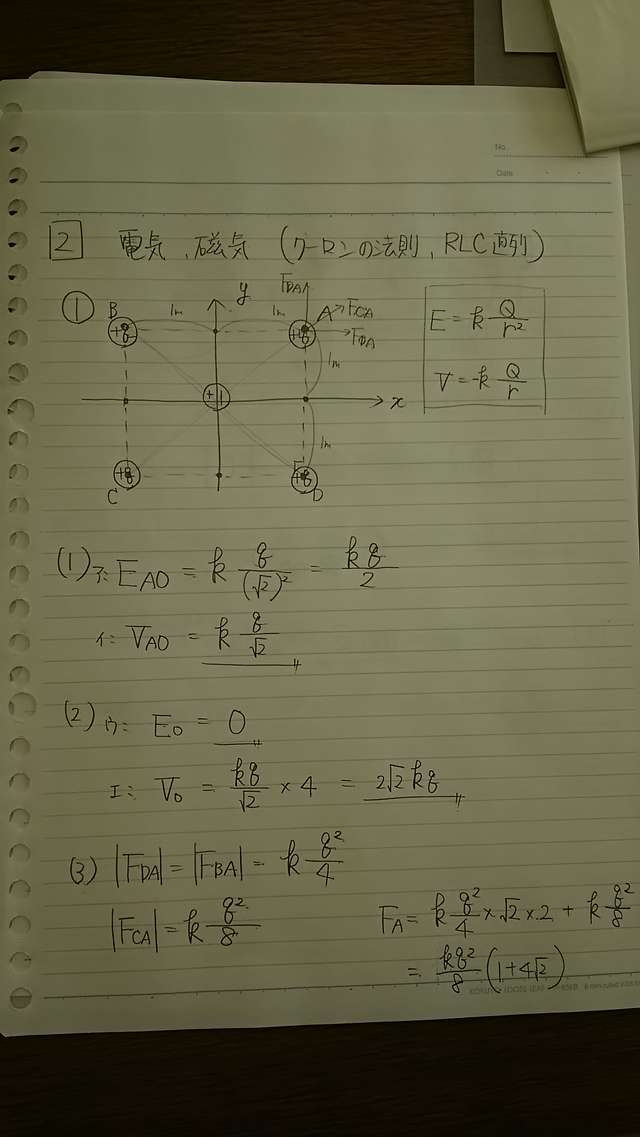 No.
Date
2 電気、磁気 (クーロンの法則, RLC直列)
① B 1m y 1m FDA A FCA FBA
+q +q 1m
+1 x
1m
+q +q
C D
E = k Q/r²
V = k Q/r
(1) ア: EAO = k q/(√2)² = kq/2
イ: VAO = k q/√2
(2) ウ: EO = 0
エ: VO = kq/√2 × 4 = 2√2 kq
(3) |FDA| = |FBA| = k q²/4
|FCA| = k q²/8
FA = k q²/4 × √2 × 2 + k q²/8
= kq²/8 (1+4√2)